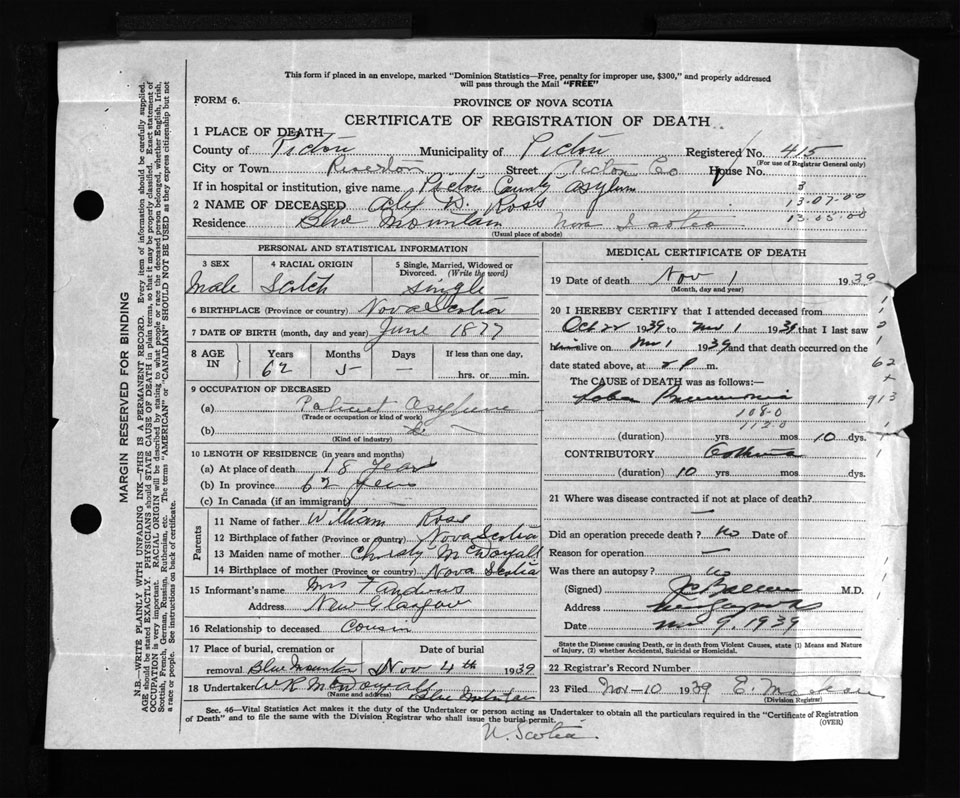 This form if placed in an envelope, marked "Dominion Statistics—Free, penalty for improper use, $300," and properly addressed
will pass through the Mail "FREE"
FORM 6.
PROVINCE OF NOVA SCOTIA
CERTIFICATE OF REGISTRATION OF DEATH
1 PLACE OF DEATH
County of Pictou Municipality of Pictou Registered No. 415
(For use of Registrar General only)
City or Town Riverton Street Pictou Co House No.
If in hospital or institution, give name Pictou County Asylum
3
13-07-00
2 NAME OF DECEASED Alex D. Ross
13-05-00
Residence Blue Mountain Nova Scotia
(Usual place of abode)
PERSONAL AND STATISTICAL INFORMATION
3 SEX 4 RACIAL ORIGIN 5 Single, Married, Widowed or Divorced. (Write the word)
Male Scotch Single
6 BIRTHPLACE (Province or country) Nova Scotia
7 DATE OF BIRTH (month, day and year) June 1877
8 AGE IN Years Months Days If less than one day,
62 5 — ....hrs. or....min.
9 OCCUPATION OF DECEASED
(a) Patient Asylum
(Trade or occupation or kind of work)
(b)
(Kind of industry)
10 LENGTH OF RESIDENCE (in years and months)
(a) At place of death 18 Years
(b) In province 62 Years
(c) In Canada (if an immigrant)
Parents
11 Name of father William Ross
12 Birthplace of father (Province or country) Nova Scotia
13 Maiden name of mother Christy McDougall
14 Birthplace of mother (Province or country) Nova Scotia
15 Informant's name Mrs F Andrews
Address New Glasgow
16 Relationship to deceased Cousin
17 Place of burial, cremation or Date of burial
removal Blue Mountain Nov 4th 1939
18 Undertaker W R McDougall Blue Mountain
(Name and address)
N. Scotia
MEDICAL CERTIFICATE OF DEATH
19 Date of death Nov 1 1939
(Month, day and year)
20 I HEREBY CERTIFY that I attended deceased from
Oct 22 1939 to Nov 1 1939 that I last saw
him alive on Nov 1 1939 and that death occurred on the
date stated above, at P m.
The CAUSE of DEATH was as follows:—
Lobar Pneumonia
108-0
112-0
(duration) yrs. mos 10 dys.
CONTRIBUTORY Asthma
(duration) 10 yrs. mos. dys.
1
1
2
1
62
x
913
1
1
21 Where was disease contracted if not at place of death?
—
Did an operation precede death? No Date of
Reason for operation —
Was there an autopsy? No
(Signed) M.D.
Address
Date Nov 9, 1939
State the Disease causing Death, or in death from Violent Causes, state (1) Means and Nature
of Injury, (2) whether Accidental, Suicidal or Homicidal.
22 Registrar's Record Number
23 Filed Nov-10 1939 E.
(Division Registrar)
Sec. 46—Vital Statistics Act makes it the duty of the Undertaker or person acting as Undertaker to obtain all the particulars required in the "Certificate of Registration
of Death" and to file the same with the Division Registrar who shall issue the burial permit.
(OVER)
MARGIN RESERVED FOR BINDING
N.B.—WRITE PLAINLY WITH UNFADING INK—THIS IS A PERMANENT RECORD. Every item of information should be carefully supplied.
AGE should be stated EXACTLY. PHYSICIANS should STATE CAUSE OF DEATH in plain terms, so that it may be properly classified. Exact statement of
OCCUPATION is very important. RACIAL ORIGIN will be described by stating to what people or race the deceased person belonged, whether English, Irish,
Scottish, French, German, Russian, Ruthenian, etc. The terms "AMERICAN" or "CANADIAN" SHOULD NOT BE USED as they express citizenship but not
a race or people. See instructions on back of certificate.